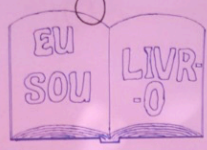 EU
SOU
LIVR-
-O